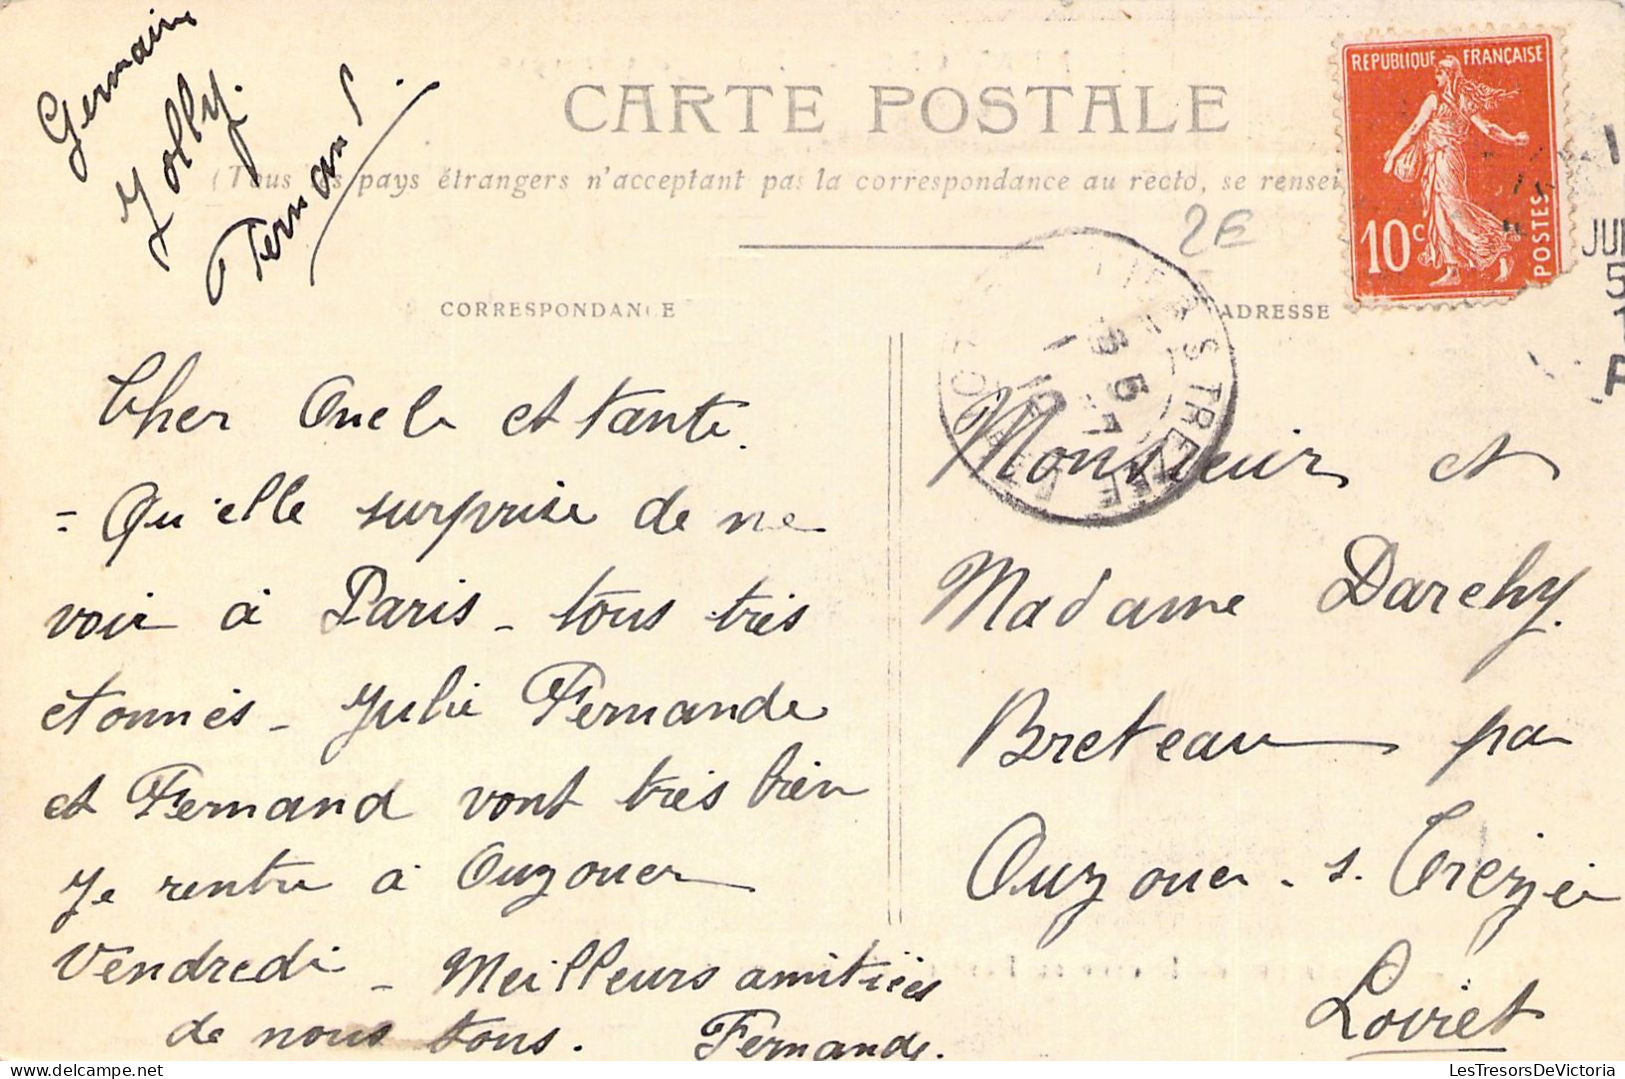 Germain
Jolly.
Fernand.
CARTE POSTALE
(Tous les pays étrangers n'acceptant pas la correspondance au recto, se rensei
2€
REPUBLIQUE FRANÇAISE
10c
POSTES
JUI
5
CORRESPONDANCE
ADRESSE
Cher Oncle et tante.
= Qu'elle surprise de ne
voir à Paris - tous très
etonnés - Julie Fernande
et Fernand vont très bien
Je rentre à Ouzouer
Vendredi - Meilleurs amitiées
de nous tous. Fernande.
Monsieur et
Madame Darchy.
Breteau par
Ouzouer. s. Trézée
Loiret
LesTresorsDeVictoria